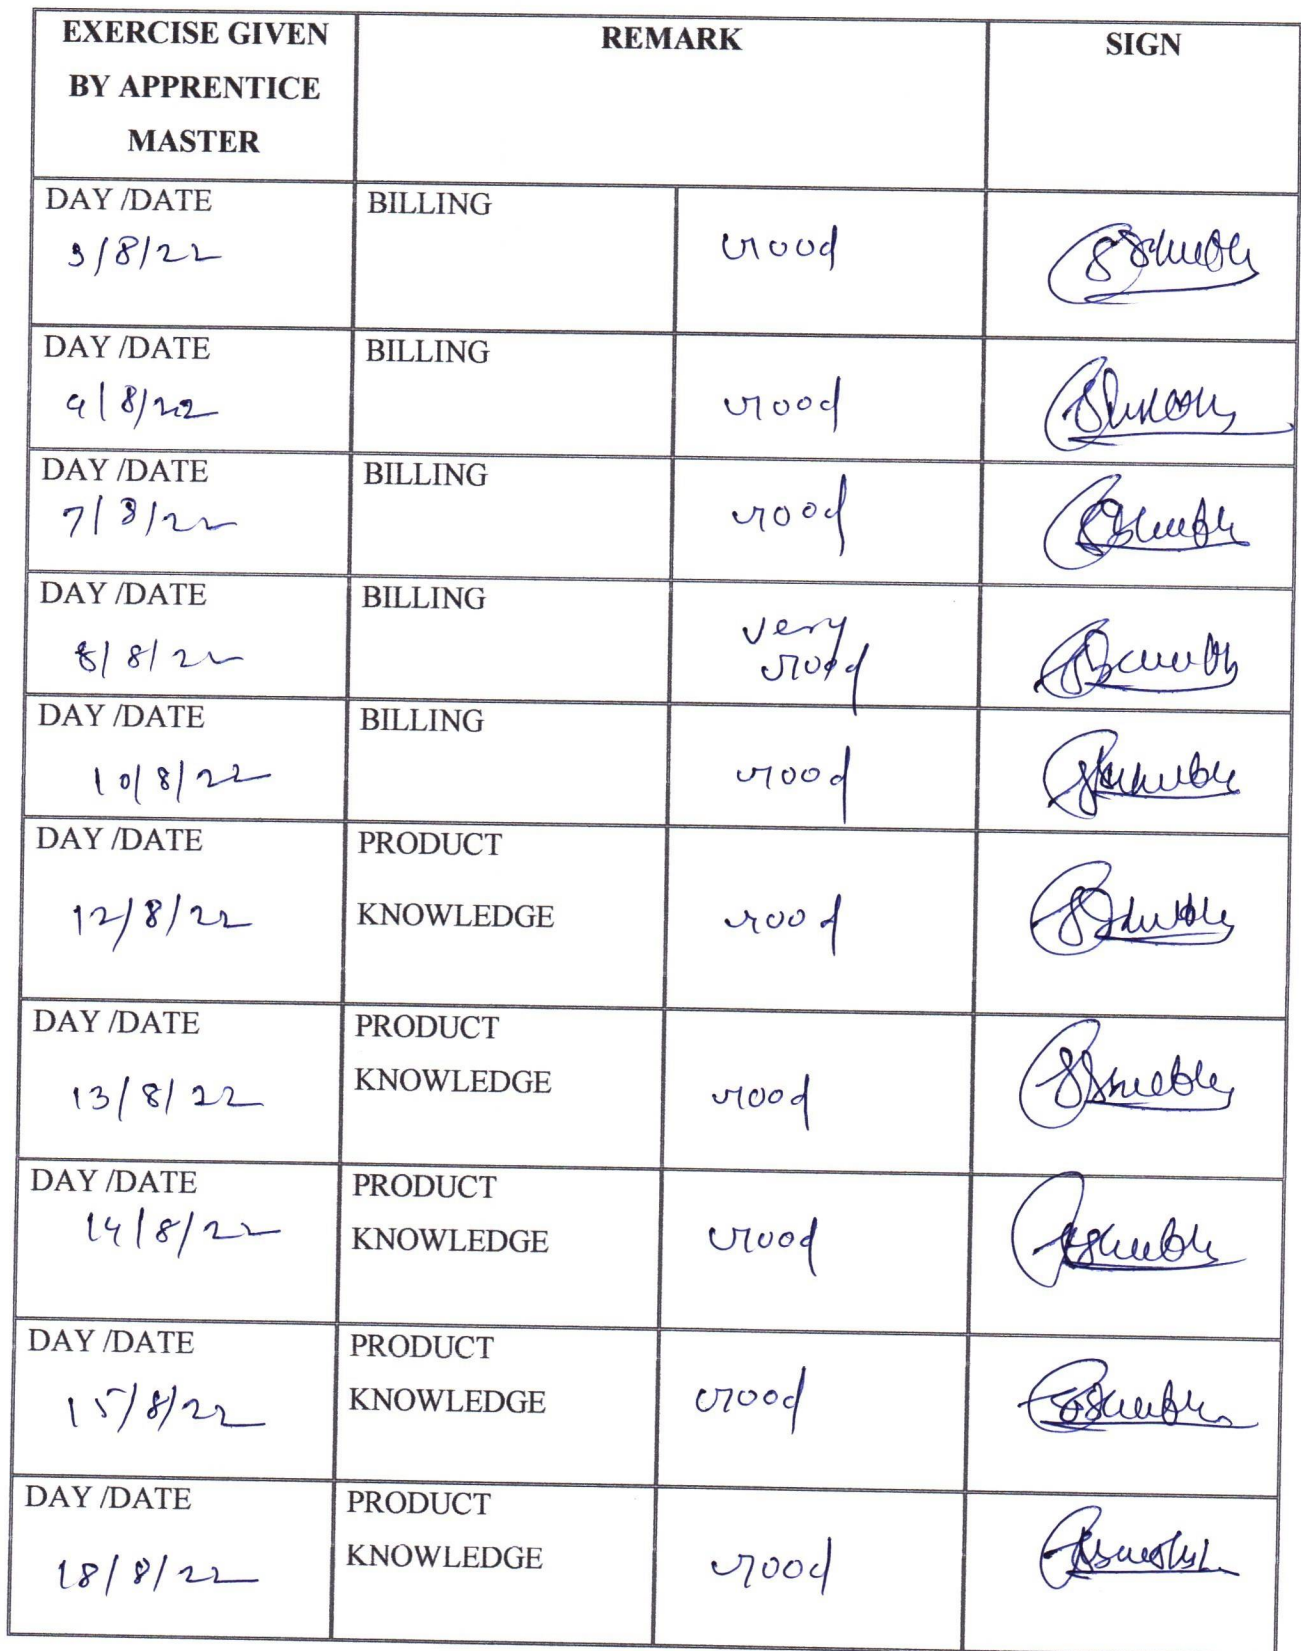 EXERCISE GIVEN
BY APPRENTICE
MASTER
REMARK
SIGN
DAY /DATE
3/8/22
BILLING
Good
DAY /DATE
4/8/22
BILLING
Good
DAY /DATE
7/8/22
BILLING
Good
DAY /DATE
8/8/22
BILLING
very
Good
DAY /DATE
10/8/22
BILLING
Good
DAY /DATE
12/8/22
PRODUCT
KNOWLEDGE
Good
DAY /DATE
13/8/22
PRODUCT
KNOWLEDGE
Good
DAY /DATE
14/8/22
PRODUCT
KNOWLEDGE
Good
DAY /DATE
15/8/22
PRODUCT
KNOWLEDGE
Good
DAY /DATE
18/8/22
PRODUCT
KNOWLEDGE
Good